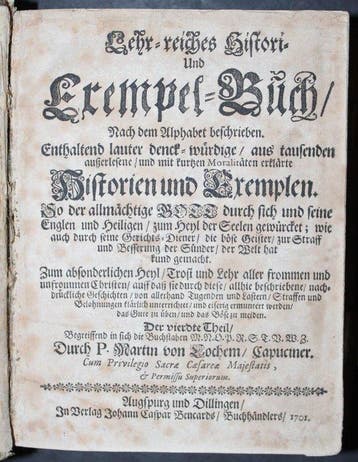 Lehr-reiches Histori-
Und
Exempel-Buch/
Nach dem Alphabet beschrieben.
Enthaltend lauter denck-würdige/ aus tausenden
außerlesene/ und mit kurtzen Moralitäten erklärte
Historien und Exemplen.
So der allmächtige GOTT durch sich und seine
Englen und Heiligen/ zum Heyl der Seelen gewürcket; wie
auch durch seine Gerichts-Diener/ die böse Geister/ zur Straff
und Besserung der Sünder/ der Welt hat
kund gemacht.
Zum absonderlichen Heyl/ Trost und Lehr aller frommen und
unfrommen Christen/ auff daß sie durch diese/ allhie beschriebene/ nach-
drückliche Geschichten/ von allerhand Tugenden und Lastern/ Straffen und
Belohnungen klärlich unterrichtet/ und eiferig ermuntert werden/
das Gute zu üben/ und das Böse zu meiden.
Der vierdte Theil/
Begreiffend in sich die Buchstaben M.N.O.P.R.S.T.V.W.Z.
Durch P. Martin von Cochem/ Capuciner.
Cum Privilegio Sacræ Cæsareæ Majestatis,
& Permissu Superiorum.
Augspurg und Dillingen/
In Verlag Johann Caspar Bencards/ Buchhändlers/ 1701.